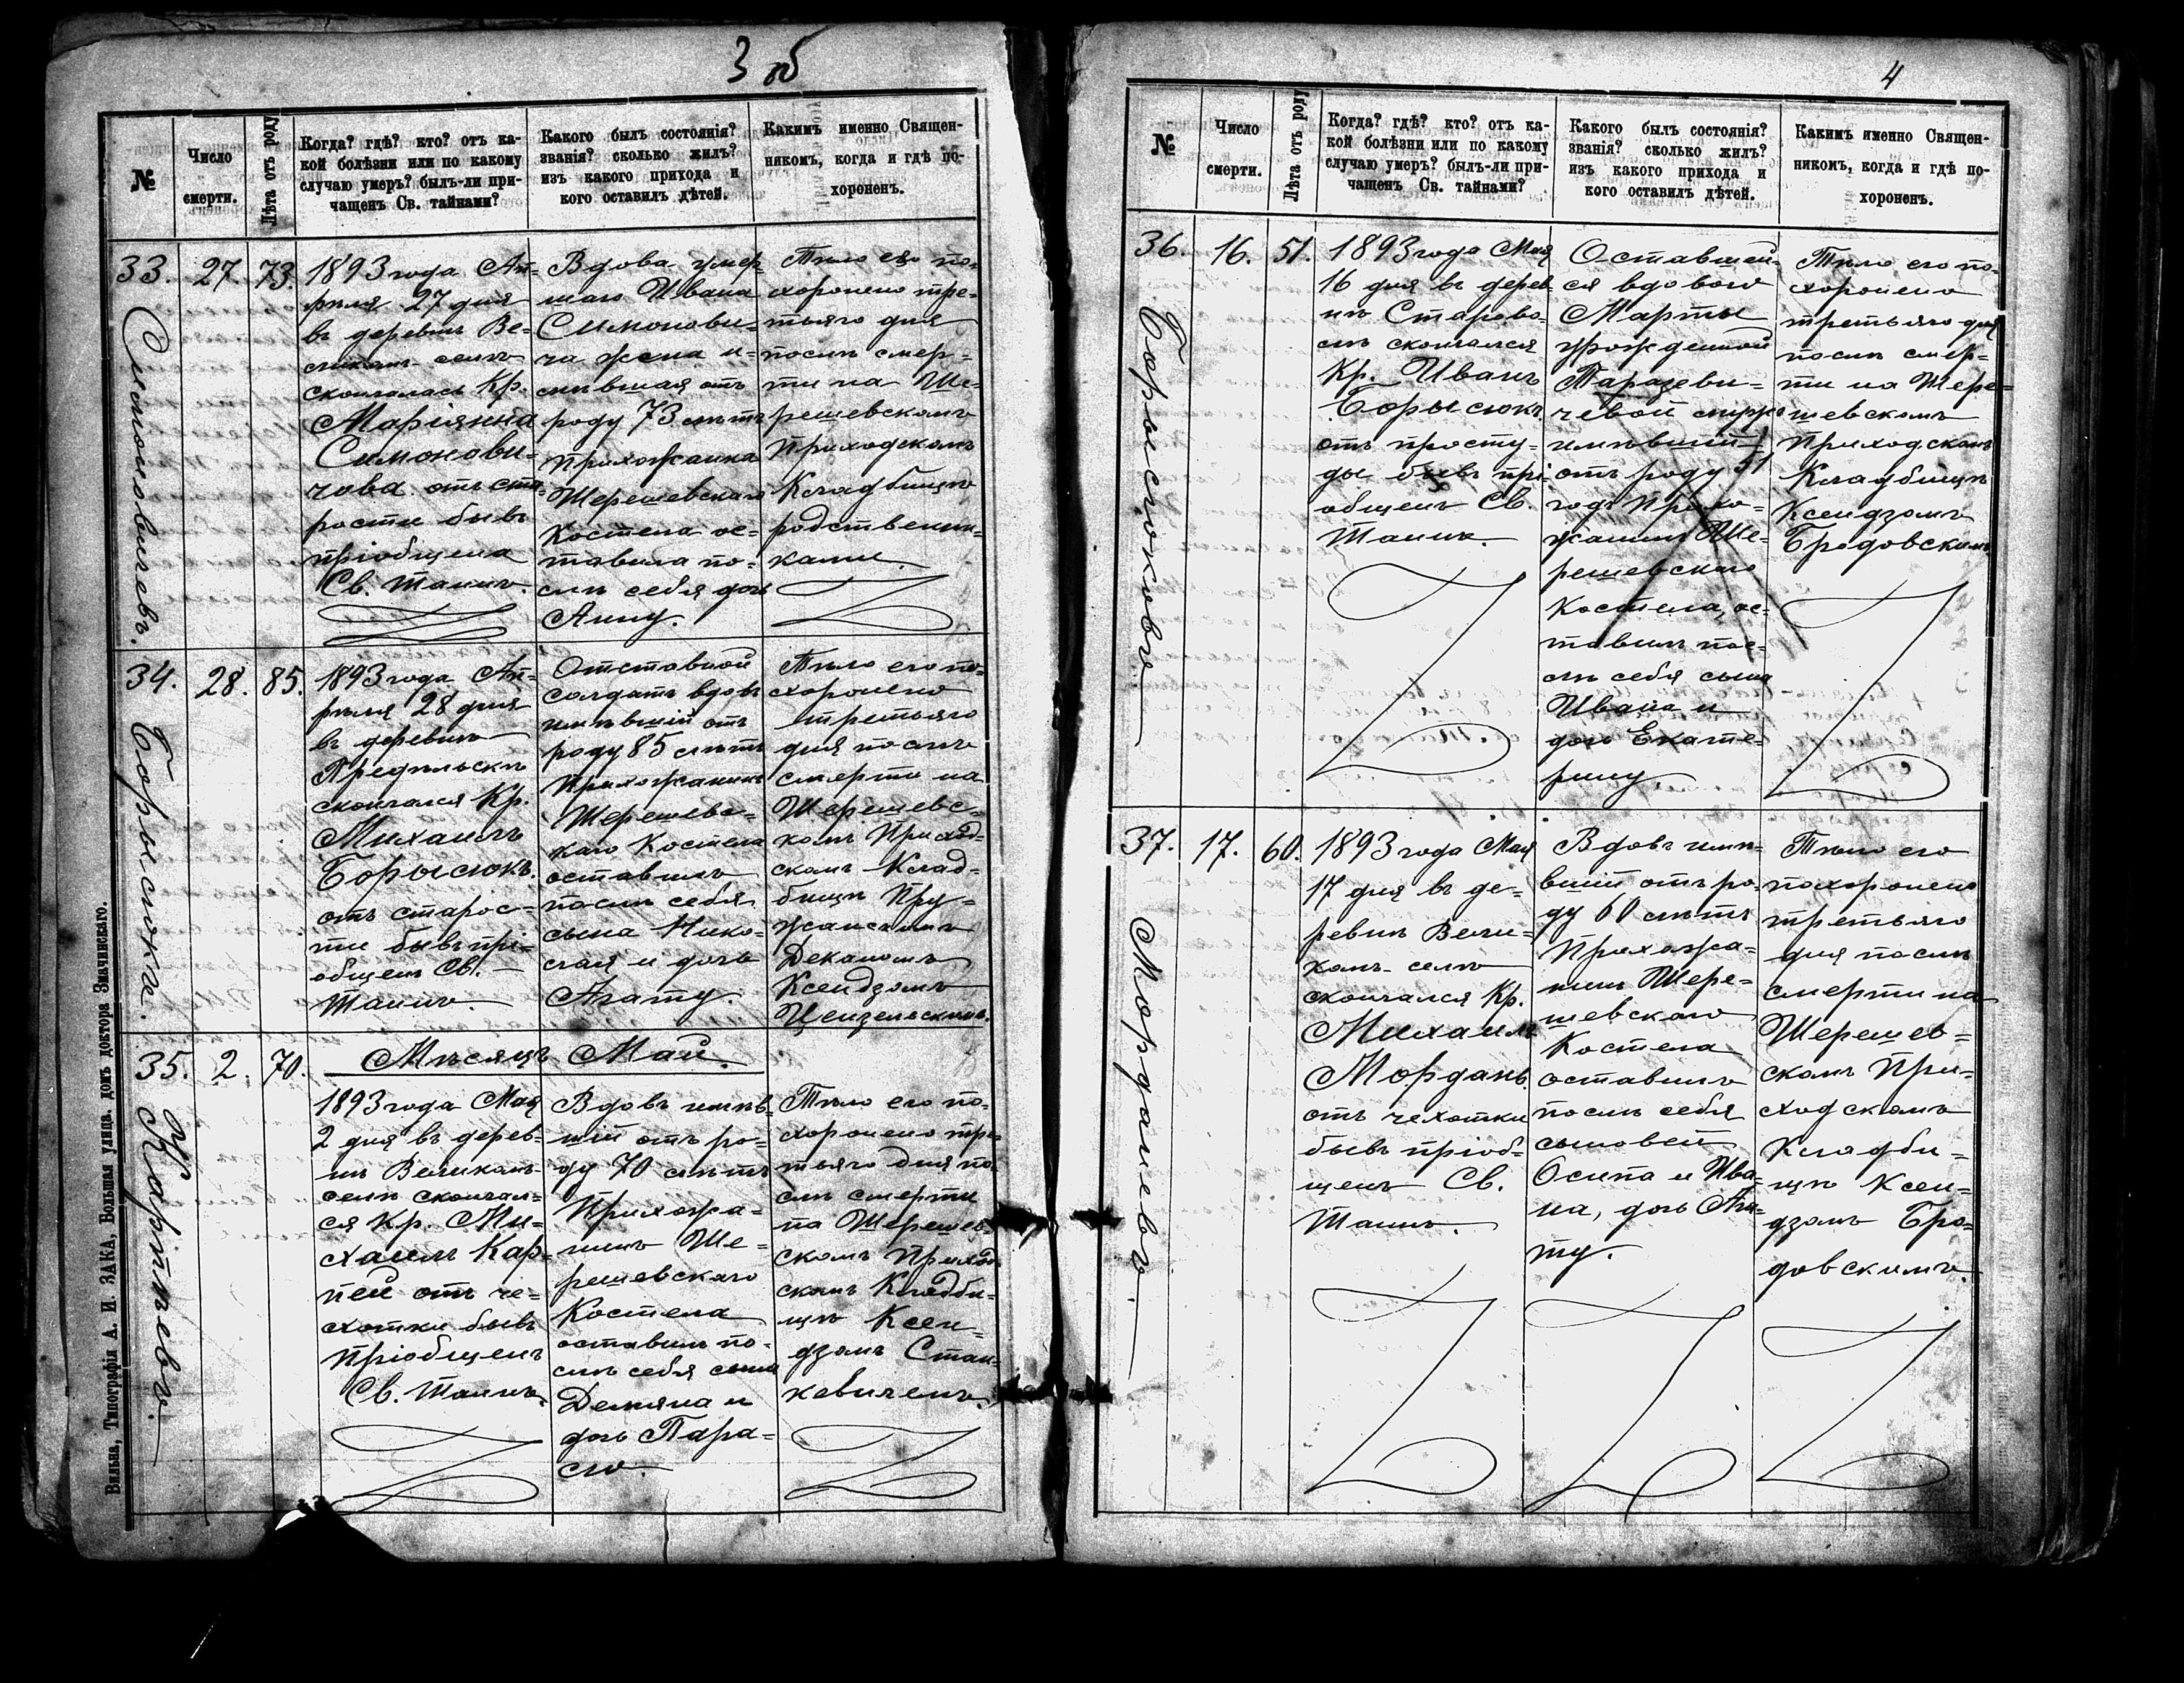 3 об
№
Число
смерти.
Лѣта отъ роду
Когда? гдѣ? кто? отъ ка-
кой болѣзни или по какому
случаю умеръ? былъ-ли при-
чащенъ Св. тайнами?
Какого былъ состоянія?
званія? сколько жилъ?
изъ какого прихода и
кого оставилъ дѣтей.
Какимъ именно Священ-
никомъ, когда и гдѣ по-
хороненъ.
33.
Симоновичевъ.
27.
73.
1893 года Ап-
рѣля 27 дня
въ деревнѣ Ве-
ликомъ-селѣ
скончалась Кр.
Маріянна
Симонови-
чова отъ ста-
рости бывъ
пріобщена
Св. Таинъ.
Вдова умер-
шаго Ивана
Симонови-
ча жена и-
мѣвшая отъ
роду 73 лѣтъ
Прихожанка
Шерешевскаго
Костела ос-
тавила по-
слѣ себя дочь
Анну.
Тѣло его по-
хоронено тре-
тьяго дня
послѣ смер-
ти на Ше-
решевскомъ
Приходскомъ
Кладбищѣ
родственни-
ками.
34.
Борысюка.
28.
85.
1893 года Ап-
рѣля 28 дня
въ деревнѣ
скончался Кр.
Михаилъ
Борысюкъ.
отъ старос-
ти бывъ прі-
общенъ Св.
Таинъ
Отставной
солдатъ вдовъ
имѣвшій отъ
роду 85 лѣтъ
Прихожанинъ
Шерешевс-
каго Костела
оставилъ
послѣ себя
сына Нико-
лая и дочь
Агату.
Тѣло его по-
хоронено
третьяго
дня послѣ
смерти на
Шерешевс-
комъ Приход-
скомъ Клад-
бищѣ Пру-
жанскимъ
Деканомъ
Ксендзомъ
35.
Карпѣевъ.
2.
70.
Мѣсяцъ Май.
1893 года Мая
2 дня въ дерев-
нѣ Великомъ-
селѣ скончал-
ся Кр. Ми-
хаилъ Кар-
пей отъ че-
хотки бывъ
Пріобщенъ
Св. Таинъ.
Вдовъ имѣв-
шій отъ ро-
ду 70 лѣтъ
Прихожа-
нинъ Ше-
решевскаго
Костела
оставилъ по-
слѣ себя сына
Демяна и
дочь Пара-
сю.
Тѣло его по-
хоронено тре-
тьяго дня по-
слѣ смерти
на Шерешев-
скомъ Приход-
скомъ Кладби-
щѣ Ксен-
дзомъ Стан-
кевичемъ.
Вильна, Типографія А. И. ЗАКА, Большая улица. домъ доктора Значинскаго.
4
№
Число
смерти.
Лѣта отъ роду
Когда? гдѣ? кто? отъ ка-
кой болѣзни или по какому
случаю умеръ? былъ-ли при-
чащенъ Св. тайнами?
Какого былъ состоянія?
званія? сколько жилъ?
изъ какого прихода и
кого оставилъ дѣтей.
Какимъ именно Священ-
никомъ, когда и гдѣ по-
хороненъ.
36.
Борысюкова.
16.
51.
1893 года Мая
16 дня въ дерев-
нѣ Старово-
лѣ скончался
Кр. Иванъ
Борысюкъ
отъ просту-
ды бывъ прі-
общенъ Св.
Таинъ.
Оставшей-
ся вдовою
Марты
урожденной
Таразеви-
чевой мужъ
имѣвшій
отъ роду 51
годъ Прихо-
жанинъ Ше-
решевскаго
Костела, ос-
тавилъ пос-
лѣ себя сына
Ивана и
дочь Екате-
рину.
Тѣло его по-
хоронено
третьяго дня
послѣ смер-
ти на Шере-
шевскомъ
Приходскомъ
Кладбищѣ
Ксендзомъ
Бродовскимъ
37.
Морданевъ.
17.
60.
1893 года Мая
17 дня въ де-
ревнѣ Вели-
комъ-селѣ
скончался Кр.
Михаилъ
Морданъ
отъ чехотки
бывъ пріоб-
щенъ Св.
Таинъ.
Вдовъ имѣ-
вшій отъ ро-
ду 60 лѣтъ
Прихожа-
нинъ Шере-
шевскаго
Костела
оставилъ
послѣ себя
сыновей
Осипа и Ива-
на, дочь Ага-
ту.
Тѣло его
похоронено
третьяго
дня послѣ
смерти на
Шерешев-
скомъ При-
ходскомъ
Кладби-
щѣ Ксен-
дзомъ Бро-
довскимъ.